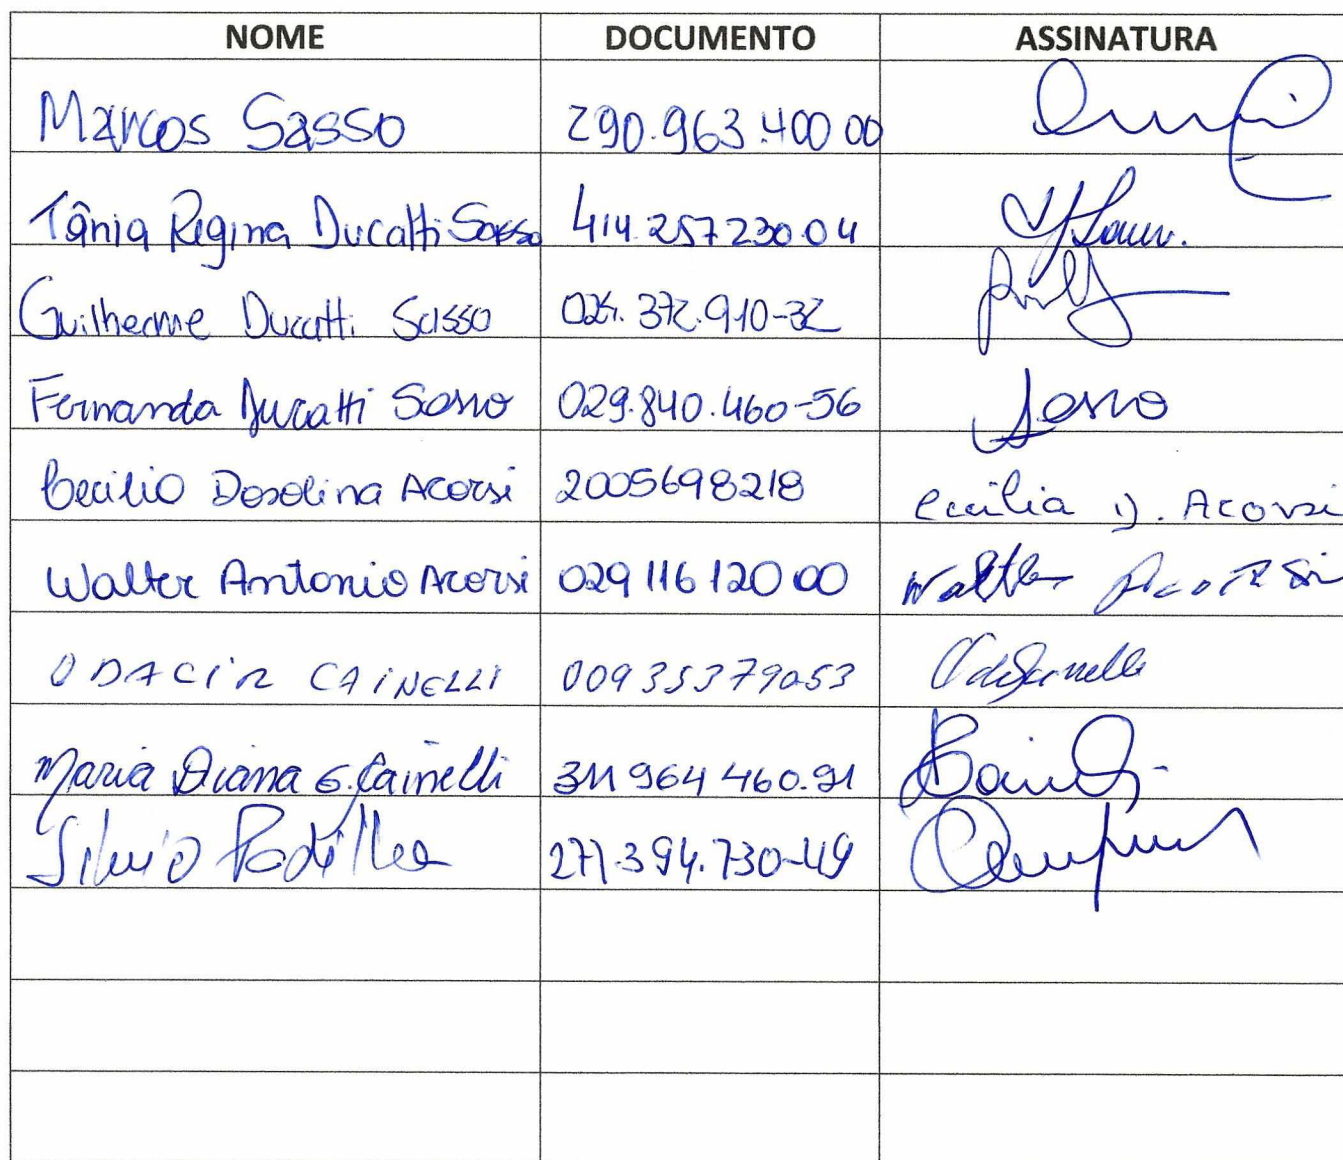 NOME DOCUMENTO ASSINATURA
Marcos Sasso 290.963.400 00
Tânia Regina Ducatti Sasso 414 257 230 04
Guilherme Ducatti Sasso 372.910-32
Fernanda Ducatti Sasso 029.840.460-56 Sasso
Cecilia Dosolina Acorsi 2005698218 Cecilia D. Acorsi
Walter Antonio Acorsi 029 116 120 00 Walter Acorsi
ODACIR CAINELLI 00935379053
Maria Diana G. Cainelli 311 964 460.91
Silvio Padilha 277.394.730-49